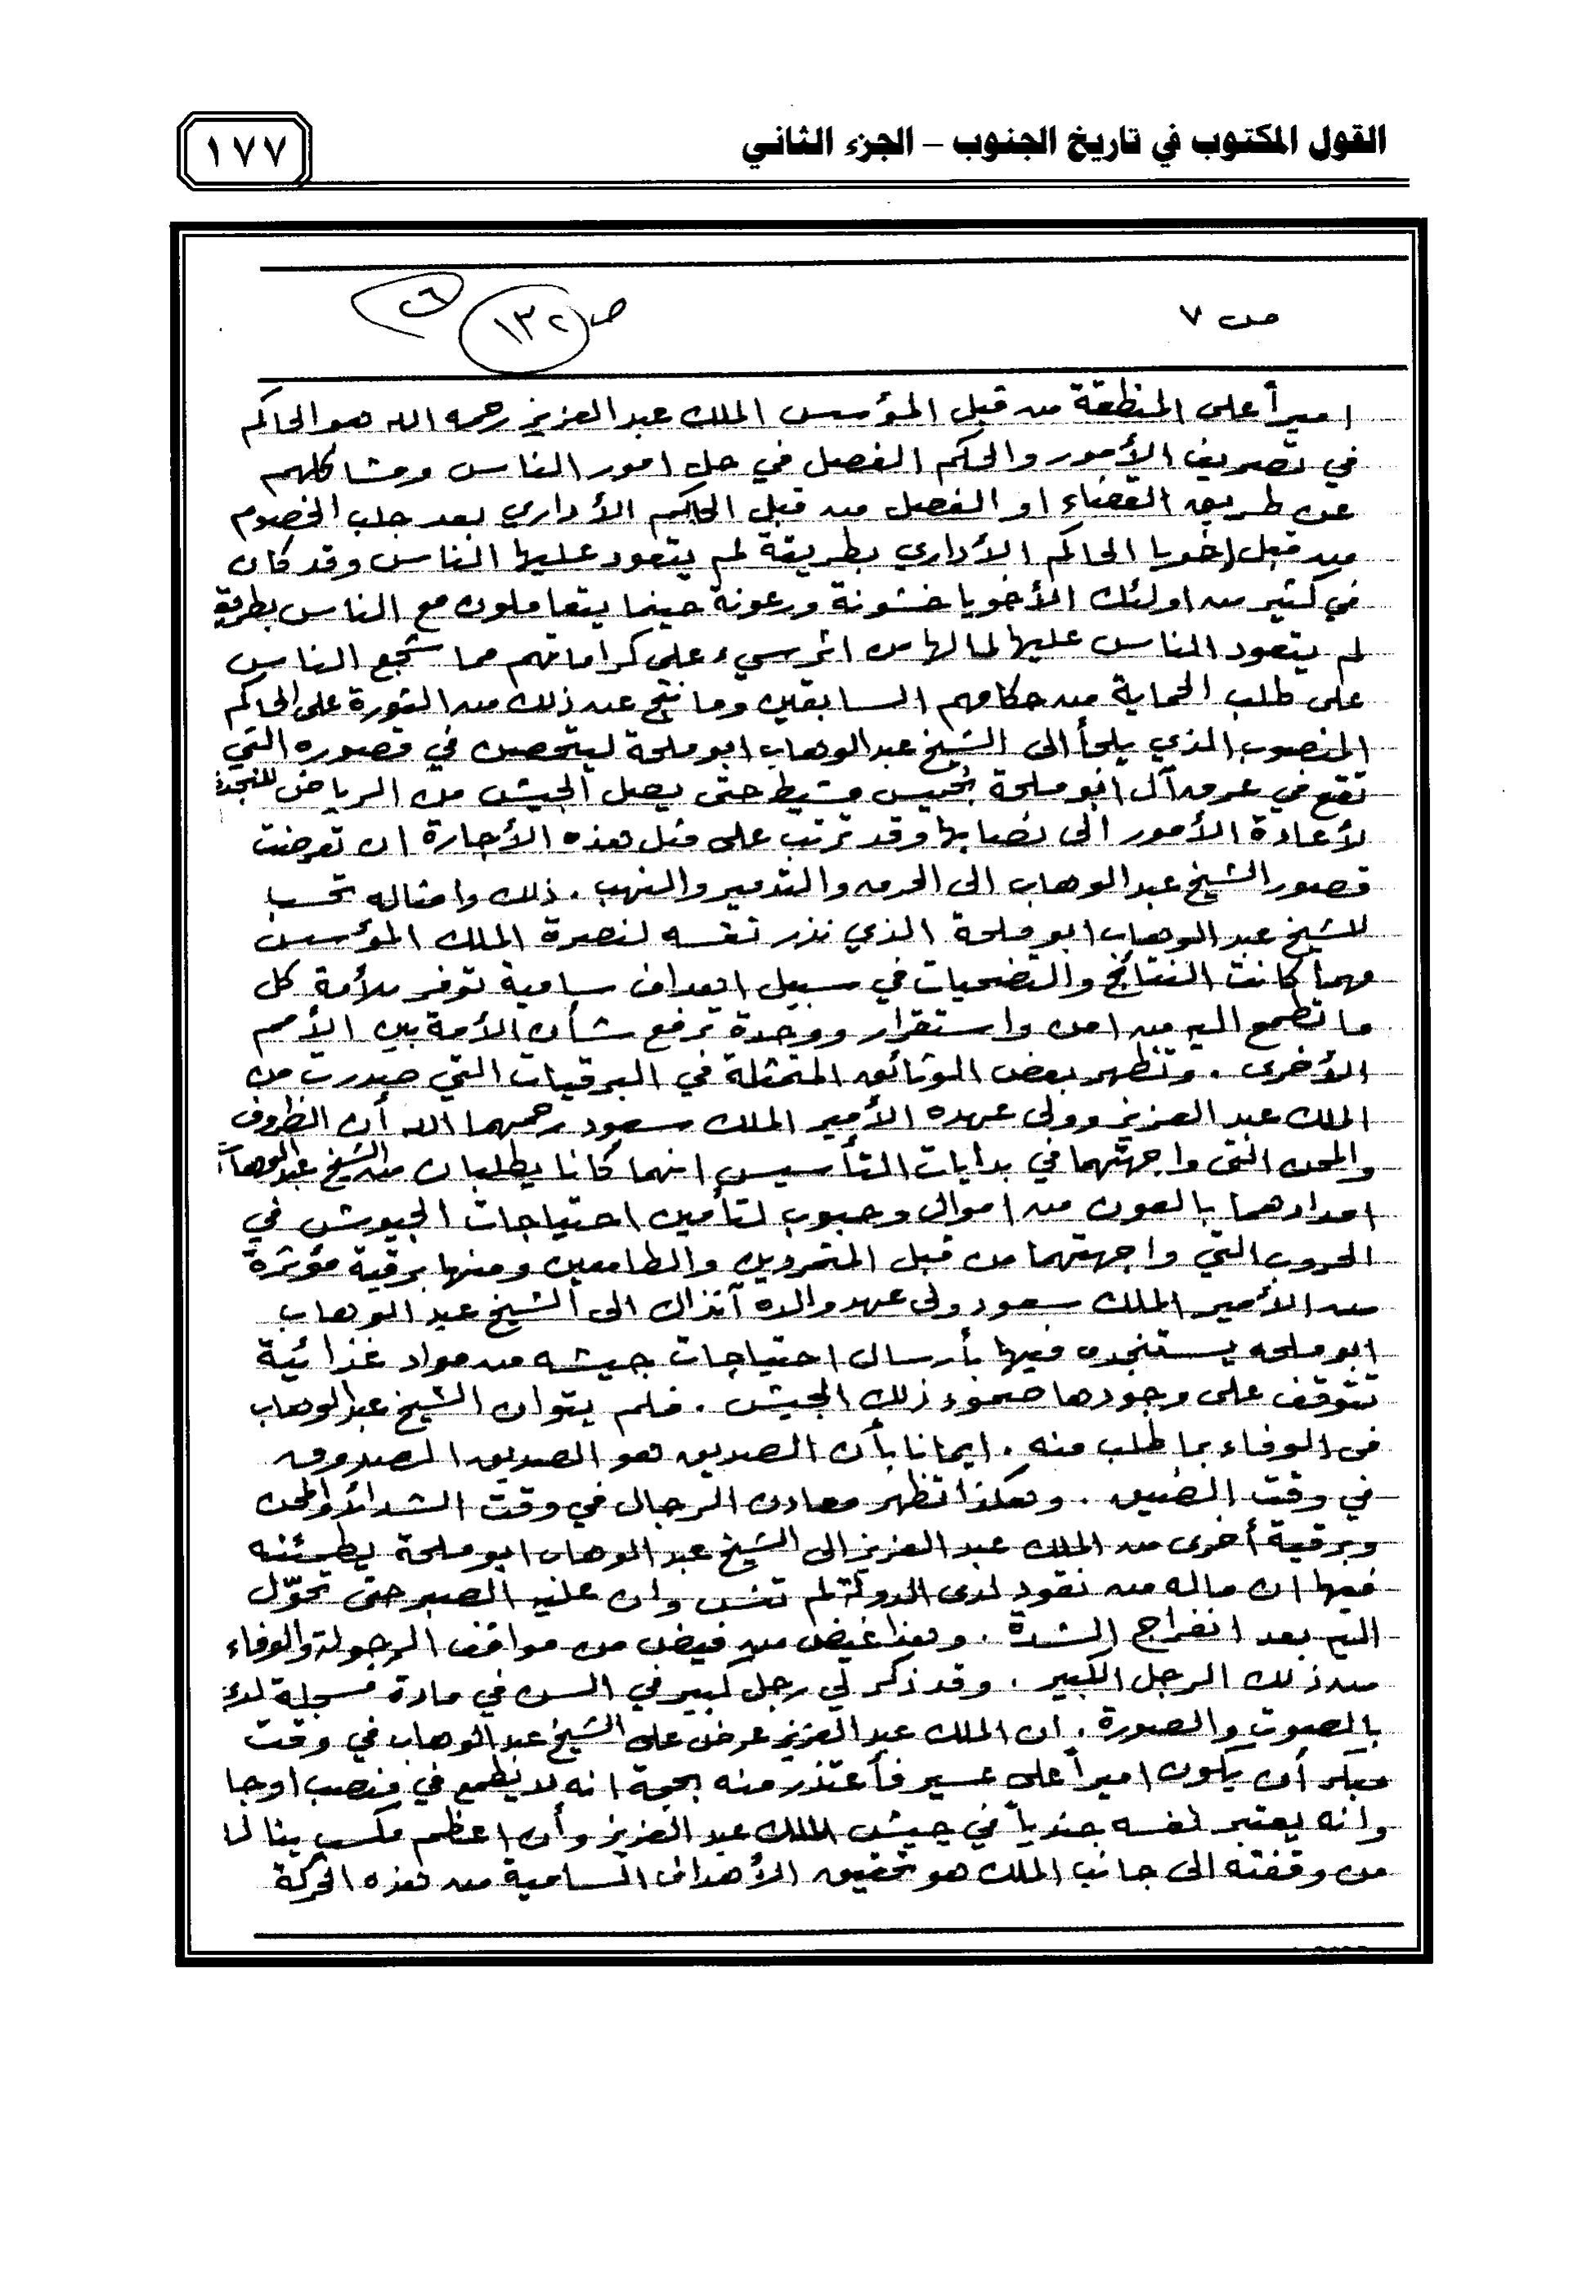 القول المكتوب في تاريخ الجنوب – الجزء الثاني
١٧٧
ص ٧
ص ١٣٢
اميراً على المنطقة من قبل المؤسس الملك عبدالعزيز رحمه الله هو الحاكم
في تصريف الأمور والحكم الفصل في حل امور الناس ومشاكلهم
عن طريق القضاء او الفصل من قبل الحاكم الأداري بعد جلب الخصوم
من قبل اخويا الحاكم الأداري بطريقة لم يتعود عليها الناس وقد كان
في كثير من اولئك الأخويا خشونة ورعونة حينما يتعاملون مع الناس بطريقة
لم يتعود الناس عليها لما لها من اثر سيء على كراماتهم مما شجع الناس
على طلب الحماية من حكامهم السابقين وما نتج عن ذلك من الثورة على الحاكم
المنصوب الذي يلجأ الى الشيخ عبدالوهاب ابو ملحة ليتحصن في قصوره التي
تقع في عرق آل ابو ملحة بخميس مشيط حتى يصل الجيش من الرياض للنجدة
لأعادة الأمور الى نصابها وقد ترتب على مثل هذه الأجارة ان تعرضت
قصور الشيخ عبدالوهاب الى الحرق والتدمير والنهب . ذلك وامثاله تحسب
للشيخ عبدالوهاب ابو ملحة الذي نذر نفسه لنصرة الملك المؤسس
مهما كانت النتائج والتضحيات في سبيل اهداف سامية توفر للأمة كل
ما تطمع اليه من امن واستقرار ووحدة ترفع شأن الأمة بين الأمم
الأخرى . وتظهر بعض الوثائق المتمثلة في البرقيات التي صدرت من
الملك عبد العزيز وولى عهده الأمير الملك سعود رحمهما الله أن الظروف
والمحن التى واجهتهما في بدايات التأسيس انهما كانا يطلبان من الشيخ عبدالوهاب
امدادهما بالعون من اموال وحبوب لتأمين احتياجات الجيوش في
الحروب التي واجهتهما من قبل المتمردين والطامعين ومنها برقية مؤثرة
من الأمير الملك سعود ولى عهد والده آنذاك الى الشيخ عبد الوهاب
ابو ملحه يستنجده فيها بأرسال احتياجات جيشه من مواد غذائية
تتوقف على وجودها صمود ذلك الجيش . فلم يتوان الشيخ عبدالوهاب
فى الوفاء بما طلب منه . ايمانا بأن الصديق هو الصديق الصدوق
في وقت الضيق . وهكذا تظهر معادن الرجال في وقت الشدائد والمحن
وبرقية أخرى من الملك عبد العزيز الى الشيخ عبد الوهاب ابو ملحة يطمئنه
فيها ان ماله من نقود لدى الدولة لم تنس وان عليه الصبر حتى تحوّل
اليه بعد انفراج الشدة . وهذا غيض من فيض من مواقف الرجولة والوفاء
من ذلك الرجل الكبير . وقد ذكر لي رجل كبير في السن في مادة مسجلة لدي
بالصوت والصورة . ان الملك عبدالعزيز عرض على الشيخ عبدالوهاب في وقت
مبكر أن يكون اميراً على عسير فأعتذر منه بحجة انه لا يطمع في منصب اوجا
وانه يعتبر نفسه جندياً في جيش الملك عبد العزيز وأن اعظم مكسب ينالـ
من وقفته الى جانب الملك هو تحقيق الأهداف السامية من هذه الحركة